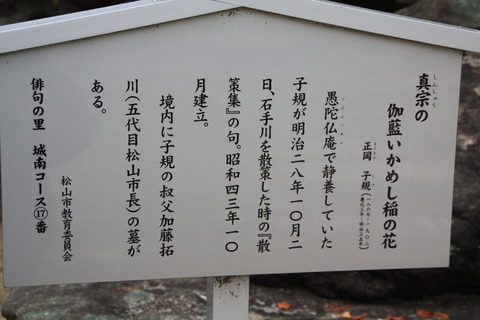 真宗の
しんしゅう
伽藍いかめし稲の花
正岡　子規（一八六七―一九〇二）
愚陀仏庵で静養していた
子規が明治二八年一〇月二
日、石手川を散策した時の『散
策集』の句。昭和四三年一〇
月建立。
境内に子規の叔父加藤拓
川（五代目松山市長）の墓が
ある。
松山市教育委員会
俳句の里　城南コース⑰番